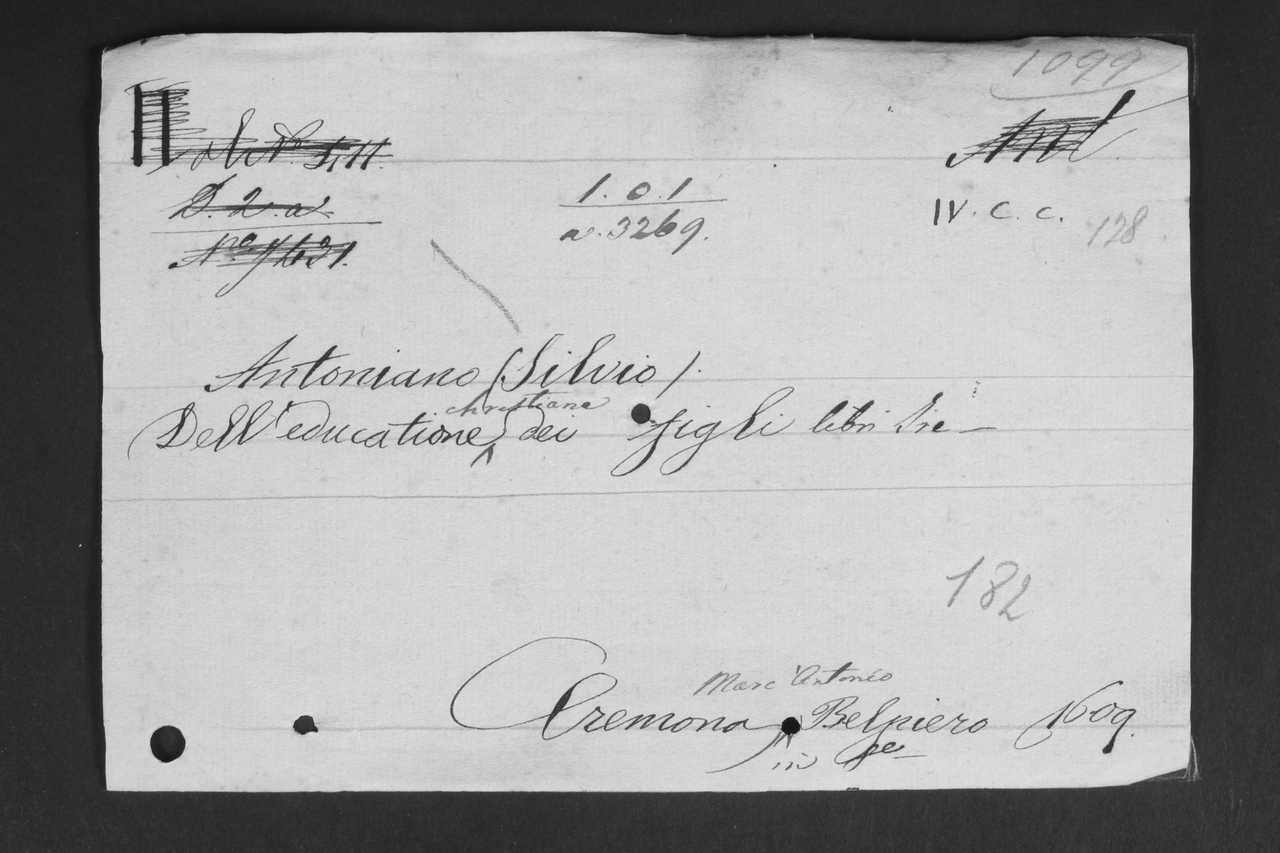 1099
D. 2. a
1. 0. 1
a. 3269.
IV. C. C.
128
Antoniano (Silvio).
christiana
Dell'educatione dei figli libri tre
182
Marc'Antonio
Cremona, Belpiero 1609.
in